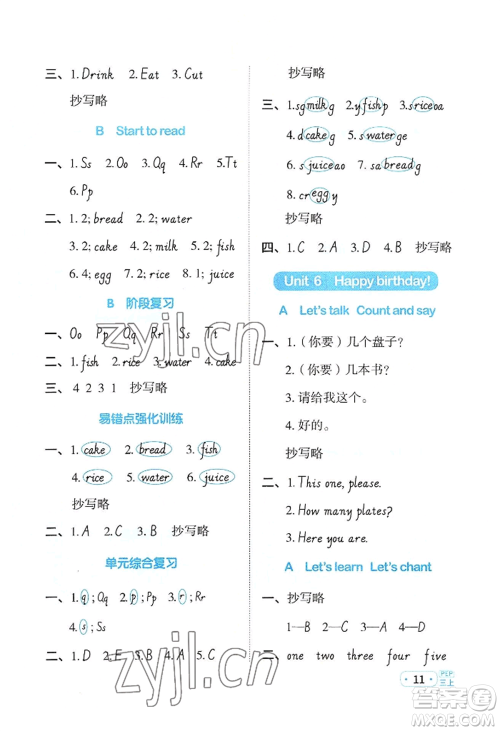 三、1.Drink 2.Eat 3.Cut
抄写略
B Start to read
一、1.Ss 2.Oo 3.Qq 4.Rr 5.Tt
6.Pp
二、1.2; bread 2.2; water
3.2; cake 4.2; milk 5.2; fish
6.4; egg 7.2; rice 8.1; juice
B 阶段复习
一、Oo Pp Qq Rr Ss Tt
二、1.fish 2.rice 3.water 4.cake
三、4 2 3 1 抄写略
易错点强化训练
一、1.cake 2.bread 3.fish
4.rice 5.water 6.juice
抄写略
二、1.A 2.C 3.B 抄写略
单元综合复习
一、1.q; Qq 2.p; Pp 3.r; Rr
4.s; Ss
二、1.D 2.E 3.B 4.A 5.C
抄写略
抄写略
三、1.sgmilkg 2.yfishp 3.sriceoa
4.dcakeg 5.swaterge
6.sjuiceao 7.sabreadg
8.creggy
抄写略
四、1.C 2.A 3.D 4.B 抄写略
Unit 6 Happy birthday!
A Let's talk Count and say
一、1.（你要）几个盘子？
2.（你要）几本书？
3.请给我这个。
4.好的。
抄写略
二、1.This one, please.
2.How many plates?
3.Here you are.
A Let's learn Let's chant
一、抄写略
1—B 2—D 3—A 4—C
二、one two three four five
11
PEP
三上
zyjl.cn
zyjl.cn
答案圈